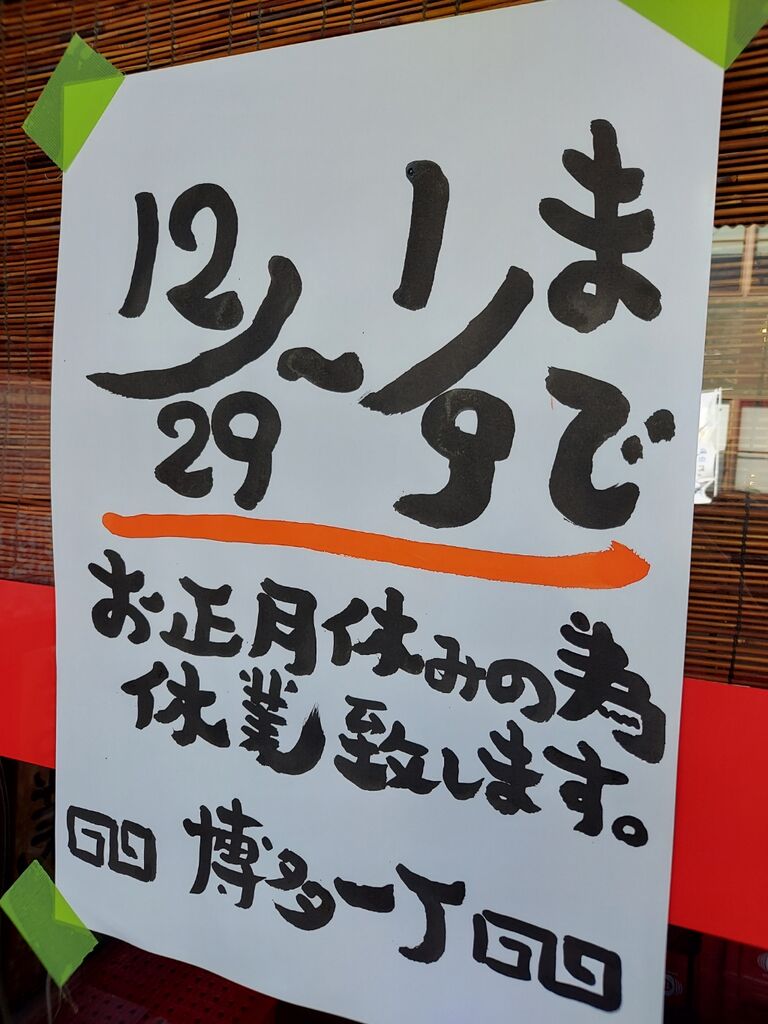 12/29~1/9まで
お正月休みの為
休業致します。
博多一丁